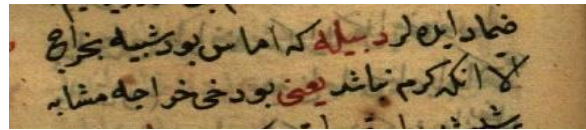 ضماد ایرلر دبیله که اماس بود شبیه بخراج
الا انکه کرم نباشد یعنی بود خی خراجه مشابه